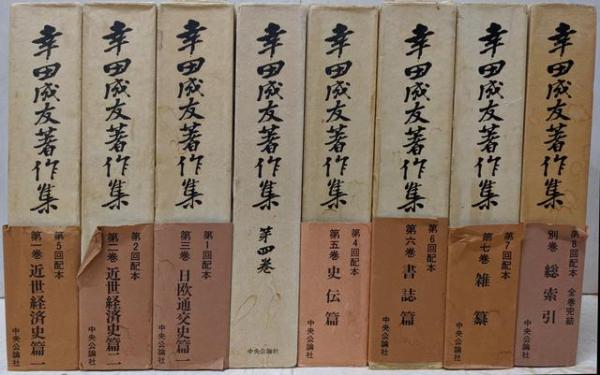 幸田成友著作集
第5回配本
第一巻 近世経済史篇一
中央公論社
幸田成友著作集
第2回配本
第二巻 近世経済史篇二
中央公論社
幸田成友著作集
第1回配本
第三巻 日欧通交史篇一
中央公論社
幸田成友著作集
第四巻
中央公論社
幸田成友著作集
第4回配本
第五巻 史伝篇
中央公論社
幸田成友著作集
第6回配本
第六巻 書誌篇
中央公論社
幸田成友著作集
第7回配本
第七巻 雑纂
中央公論社
幸田成友著作集
第8回配本 全巻完結
別巻 総索引
中央公論社